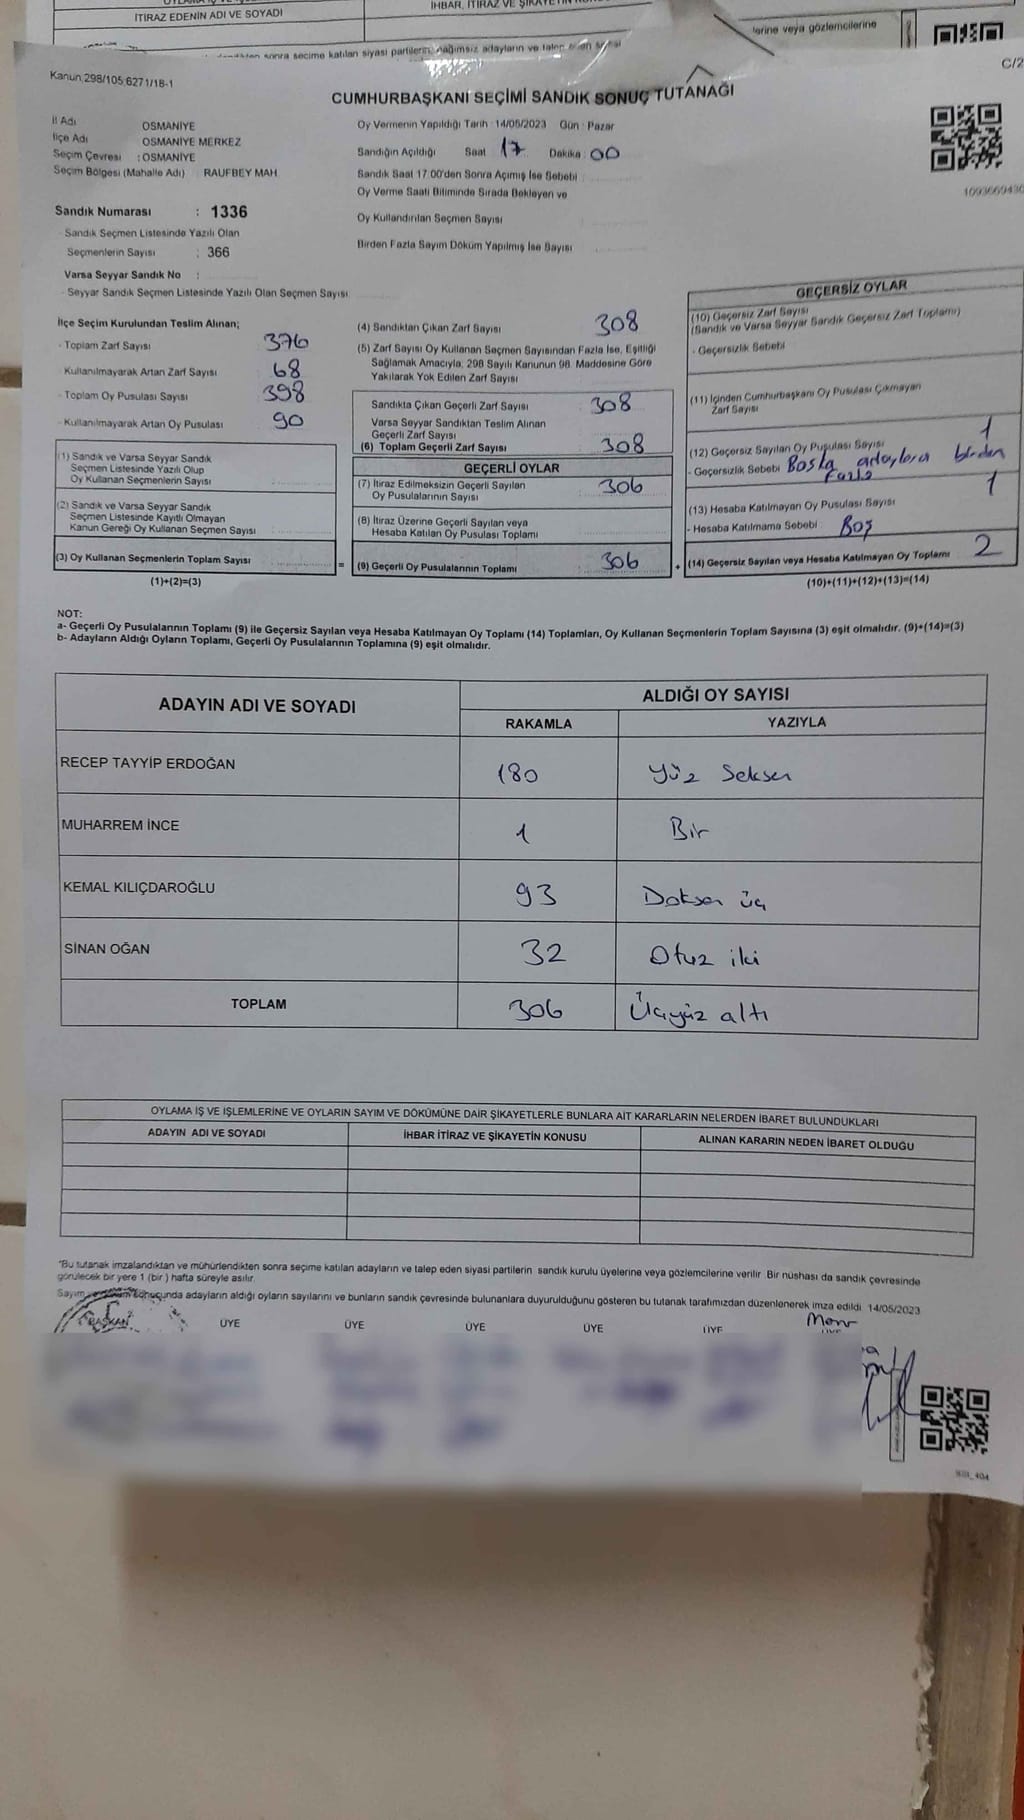 İTİRAZ EDENİN ADI VE SOYADI
İHBAR, İTİRAZ VE
sonra seçime katılan siyasi partilerin, bağımsız adayların ve talep eden
lerine veya gözlemcilerine
Kanun 298/105 6271/18-1
C/2
CUMHURBAŞKANI SEÇİMİ SANDIK SONUÇ TUTANAĞI
İl Adı OSMANİYE
İlçe Adı OSMANİYE MERKEZ
Seçim Çevresi : OSMANİYE
Seçim Bölgesi (Mahalle Adı) RAUFBEY MAH.
Oy Vermenin Yapıldığı Tarih : 14/05/2023 Gün : Pazar
Sandığın Açıldığı Saat 17 Dakika : 00
Sandık Saat 17.00'den Sonra Açımış İse Sebebi
Oy Verme Saati Bitiminde Sırada Bekleyen ve
Oy Kullandırılan Seçmen Sayısı
Birden Fazla Sayım Döküm Yapılmış İse Sayısı
Sandık Numarası : 1336
- Sandık Seçmen Listesinde Yazılı Olan
Seçmenlerin Sayısı : 366
Varsa Seyyar Sandık No :
- Seyyar Sandık Seçmen Listesinde Yazılı Olan Seçmen Sayısı:
İlçe Seçim Kurulundan Teslim Alınan;
- Toplam Zarf Sayısı 376
- Kullanılmayarak Artan Zarf Sayısı 68
- Toplam Oy Pusulası Sayısı 398
- Kullanılmayarak Artan Oy Pusulası 90
(1) Sandık ve Varsa Seyyar Sandık
Seçmen Listesinde Yazılı Olup
Oy Kullanan Seçmenlerin Sayısı :
(2) Sandık ve Varsa Seyyar Sandık
Seçmen Listesinde Kayıtlı Olmayan
Kanun Gereği Oy Kullanan Seçmen Sayısı :
(3) Oy Kullanan Seçmenlerin Toplam Sayısı :
(1)+(2)=(3)
=
(4) Sandıktan Çıkan Zarf Sayısı 308
(5) Zarf Sayısı Oy Kullanan Seçmen Sayısından Fazla İse, Eşitliği
Sağlamak Amacıyla, 298 Sayılı Kanunun 98. Maddesine Göre
Yakılarak Yok Edilen Zarf Sayısı
Sandıkta Çıkan Geçerli Zarf Sayısı 308
Varsa Seyyar Sandıktan Teslim Alınan
Geçerli Zarf Sayısı
(6) Toplam Geçerli Zarf Sayısı 308
GEÇERLİ OYLAR
(7) İtiraz Edilmeksizin Geçerli Sayılan
Oy Pusulalarının Sayısı 306
(8) İtiraz Üzerine Geçerli Sayılan veya
Hesaba Katılan Oy Pusulası Toplamı
(9) Geçerli Oy Pusulalarının Toplamı 306
+
GEÇERSİZ OYLAR
(10) Geçersiz Zarf Sayısı
(Sandık ve Varsa Seyyar Sandık Geçersiz Zarf Toplamı)
- Geçersizlik Sebebi
(11) İçinden Cumhurbaşkanı Oy Pusulası Çıkmayan
Zarf Sayısı
(12) Geçersiz Sayılan Oy Pusulası Sayısı 1
- Geçersizlik Sebebi Başka adaylara birden
Fazla
(13) Hesaba Katılmayan Oy Pusulası Sayısı 1
- Hesaba Katılmama Sebebi : Boş
(14) Geçersiz Sayılan veya Hesaba Katılmayan Oy Toplamı 2
(10)+(11)+(12)+(13)=(14)
NOT:
a- Geçerli Oy Pusulalarının Toplamı (9) ile Geçersiz Sayılan veya Hesaba Katılmayan Oy Toplamı (14) Toplamları, Oy Kullanan Seçmenlerin Toplam Sayısına (3) eşit olmalıdır. (9)+(14)=(3)
b- Adayların Aldığı Oyların Toplamı, Geçerli Oy Pusulalarının Toplamına (9) eşit olmalıdır.
ADAYIN ADI VE SOYADI
ALDIĞI OY SAYISI
RAKAMLA YAZIYLA
RECEP TAYYİP ERDOĞAN 180 Yüz Seksen
MUHARREM İNCE 1 Bir
KEMAL KILIÇDAROĞLU 93 Doksan üç
SİNAN OĞAN 32 Otuz iki
TOPLAM 306 Üçyüz altı
OYLAMA İŞ VE İŞLEMLERİNE VE OYLARIN SAYIM VE DÖKÜMÜNE DAİR ŞİKAYETLERLE BUNLARA AİT KARARLARIN NELERDEN İBARET BULUNDUKLARI
ADAYIN ADI VE SOYADI İHBAR İTİRAZ VE ŞİKAYETİN KONUSU ALINAN KARARIN NEDEN İBARET OLDUĞU
*Bu tutanak imzalandıktan ve mühürlendikten sonra seçime katılan adayların ve talep eden siyasi partilerin sandık kurulu üyelerine veya gözlemcilerine verilir. Bir nüshası da sandık çevresinde
görülecek bir yere 1 (bir ) hafta süreyle asılır.
Sayım sonucunda adayların aldığı oyların sayılarını ve bunların sandık çevresinde bulunanlara duyurulduğunu gösteren bu tutanak tarafımızdan düzenlenerek imza edildi. 14/05/2023
BAŞKAN ÜYE ÜYE ÜYE ÜYE ÜYE